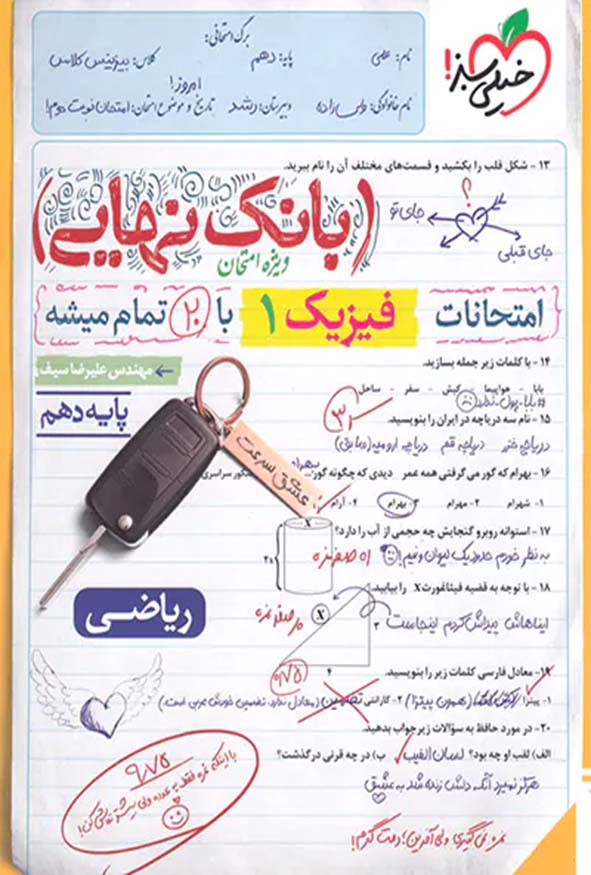 برگ امتحانی:
نام: علی پایه: دهم کلاس: بیزینس کلاس
امروز!
نام خانوادگی: ولی زاده دبیرستان: رشد تاریخ و موضوع امتحان: امتحان نوبت دوم!
خیلی سبز!
۱۳ - شکل قلب را بکشید و قسمت‌های مختلف آن را نام ببرید.
؟
جای تو
جای قبلی
(بانک نهایی)
ویژه امتحان
امتحانات فیزیک ۱ با ۲۰ تمام میشه
۱۴ - با کلمات زیر جمله بسازید.
← مهندس علیرضا سیف
بابا - هواپیما - کیش - سفر - ساحل
بابا پول ندارد
پایه دهم
۱۵ - نام سه دریاچه در ایران را بنویسید.
دریاچه خزر دریاچه قم دریاچه ارومیه (سابق)
عشق سرعت
بهرام
۱۶ - بهرام که گور می‌گرفتی همه عمر دیدی که چگونه گور
کور سراسری
۱- شهرام ۲- مهرام ۳- بهرام ۴- آرام
۱۷ - استوانه روبرو گنجایش چه حجمی از آب را دارد؟
به نظر خودم حدود یک لیوان و نیم!
X
۱۸ - با توجه به قضیه فیثاغورث X را بیابید.
ایناهاش پیداش کردم اینجاست
X
۳
۴
ریاضی
۱۹- معادل فارسی کلمات زیر را بنویسید.
۹/۷۵
۱- پیتزا (همون پیتزا) ۲- گارانتی تضمین (معادل ندارد تضمین خودش عربی است)
۲۰- در مورد حافظ به سؤالات زیر جواب بدهید.
الف) لقب او چه بود؟ لسان الغیب ب) در چه قرنی درگذشت؟
هرگز نمیرد آنکه دلش زنده شد به عشق
۹/۷۵
نمره نمی‌گیری ولی آفرین؛ دمت گرم!